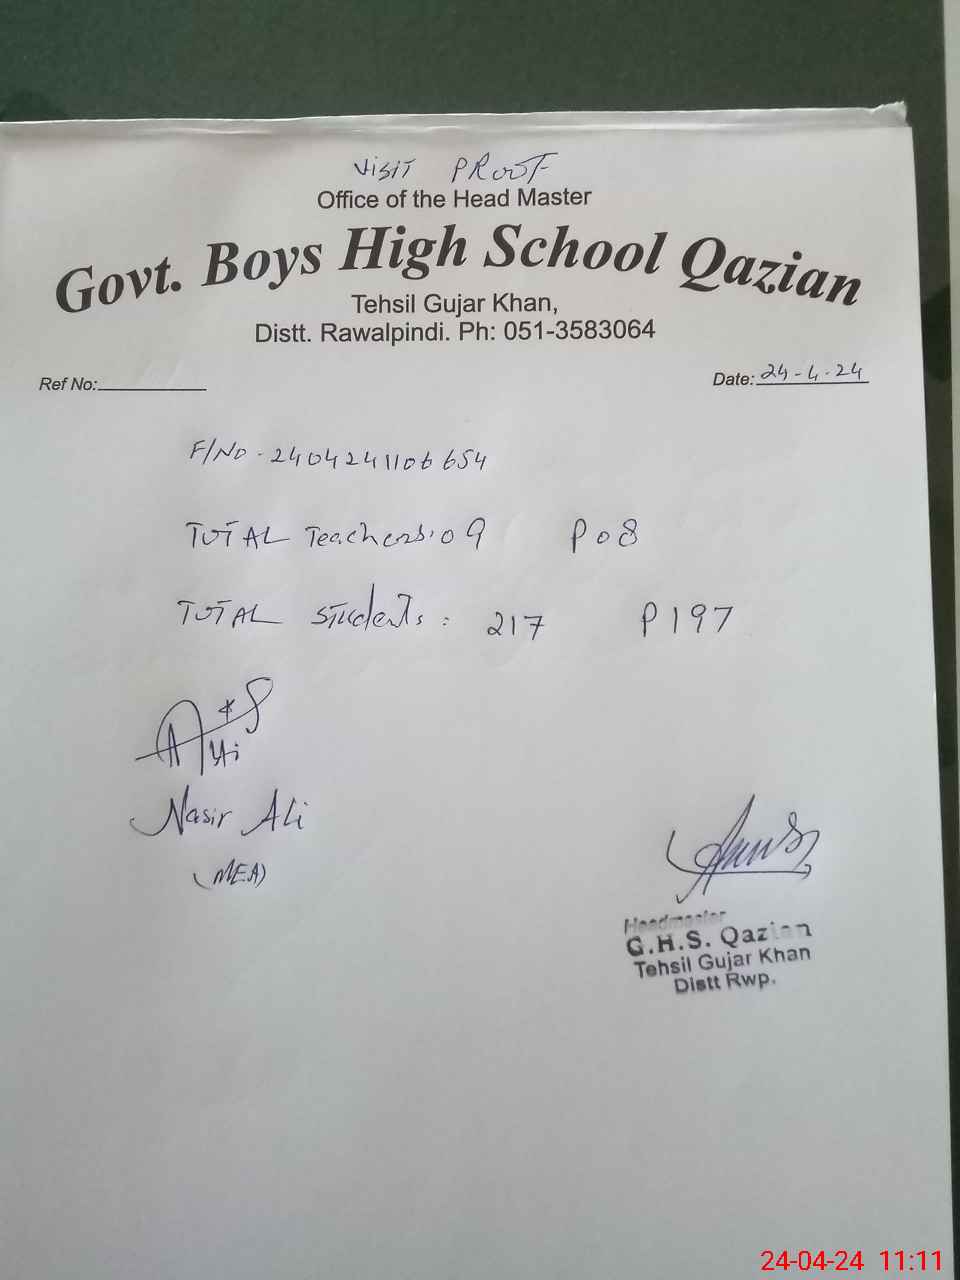 VISIT PROOF
Office of the Head Master
Govt. Boys High School Qazian
Tehsil Gujar Khan,
Distt. Rawalpindi. Ph: 051-3583064
Ref No:
Date: 24-4-24
F/NO-2404241106654
TOTAL Teachers: 09 P 08
TOTAL Students: 217 P 197
Nasir Ali
(MEA)
Headmaster
G.H.S. Qazian
Tehsil Gujar Khan
Distt Rwp.
24-04-24 11:11